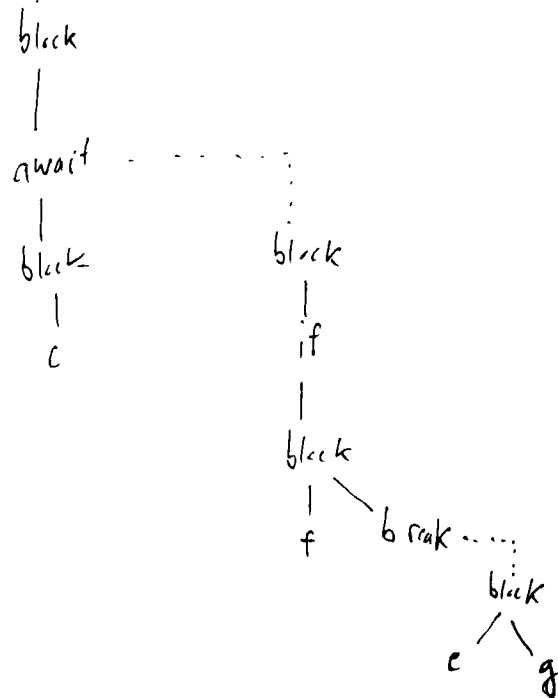 block
await
block
block
c
if
block
f
break
block
e
g